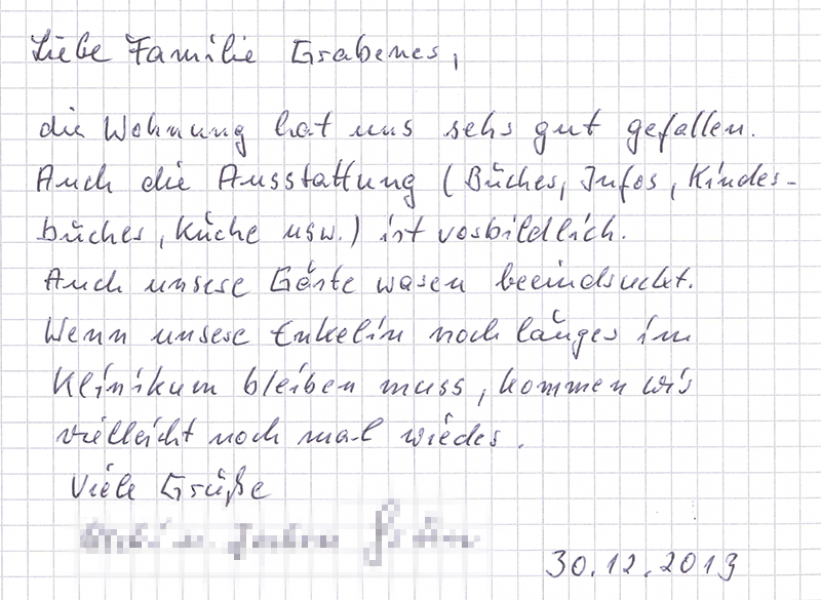 Liebe Familie Grabener,
die Wohnung hat uns sehr gut gefallen.
Auch die Ausstattung (Bücher, Infos, Kinder-
bücher, Küche usw.) ist vorbildlich.
Auch unsere Gäste waren beeindruckt.
Wenn unsere Enkelin noch länger im
Klinikum bleiben muss, kommen wir
vielleicht noch mal wieder.
Viele Grüße
30.12.2013